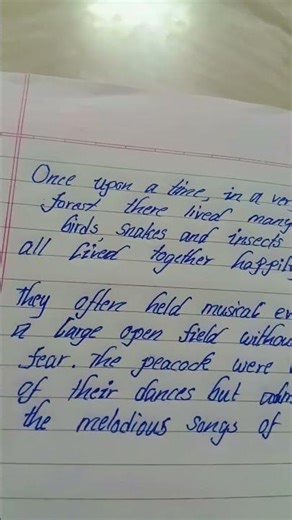 Once upon a time in a
forest there lived many
birds snakes and insects
all lived together
They often held musical
a large open field
fear. The peacock were
of their dances but
the melodious songs of